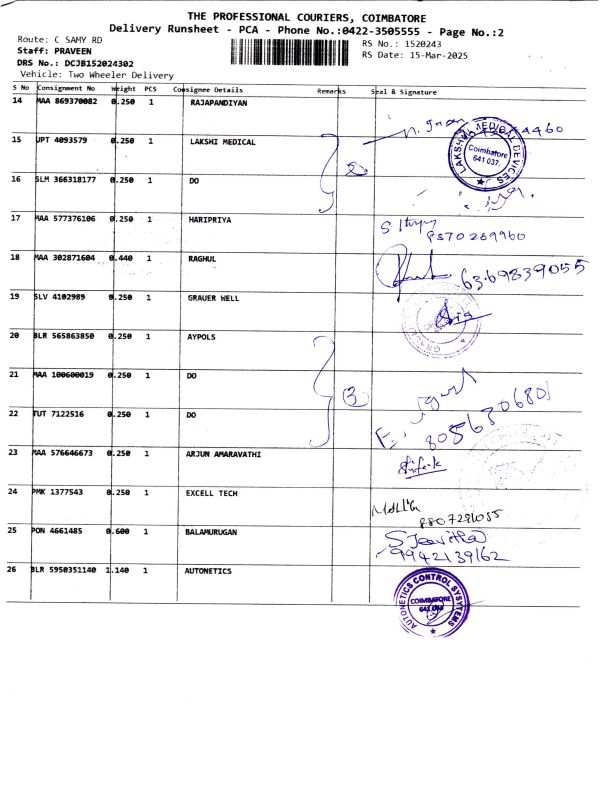 THE PROFESSIONAL COURIERS, COIMBATORE
Delivery Runsheet - PCA - Phone No.:0422-3505555 - Page No.:2
Route: C SAMY RD
RS No.: 1520243
Staff: PRAVEEN
RS Date: 15-Mar-2025
DRS No.: DCJB152024302
Vehicle: Two Wheeler Delivery
S No Consignment No Weight PCS Consignee Details Remarks Seal & Signature
14 MAA 869370082 0.250 1 RAJAPANDIYAN
15 JPT 4093579 0.250 1 LAKSHI MEDICAL
LAKSHMI MEDICAL DEVICES
Coimbatore
641 037.
16 SLM 366318177 0.250 1 DO
17 MAA 577376106 0.250 1 HARIPRIYA
18 MAA 302871604 0.440 1 RAGHUL
6369839055
19 SLV 4102989 0.250 1 GRAUER WELL
20 BLR 565863850 0.250 1 AYPOLS
21 MAA 100600019 0.250 1 DO
3
22 TUT 7122516 0.250 1 DO
8056706801
23 MAA 576646673 0.250 1 ARJUN AMARAVATHI
24 PMK 1377543 0.250 1 EXCELL TECH
25 PON 4661485 0.600 1 BALAMURUGAN
S Jeevitha
9942139162
26 BLR 5950351140 1.140 1 AUTONETICS
AUTONETICS CONTROL SYSTEMS
COIMBATORE